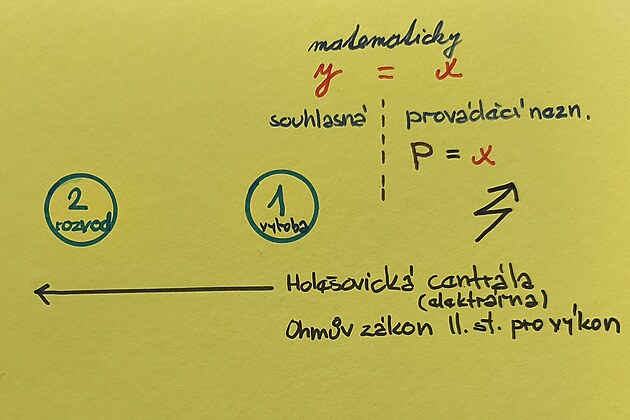 matematicky
y = x
souhlasná
provádácí nazn.
P = x
2
rozvod
1
výroba
Holešovická centrála
(elektrárna)
Ohmův zákon II. st. pro výkon